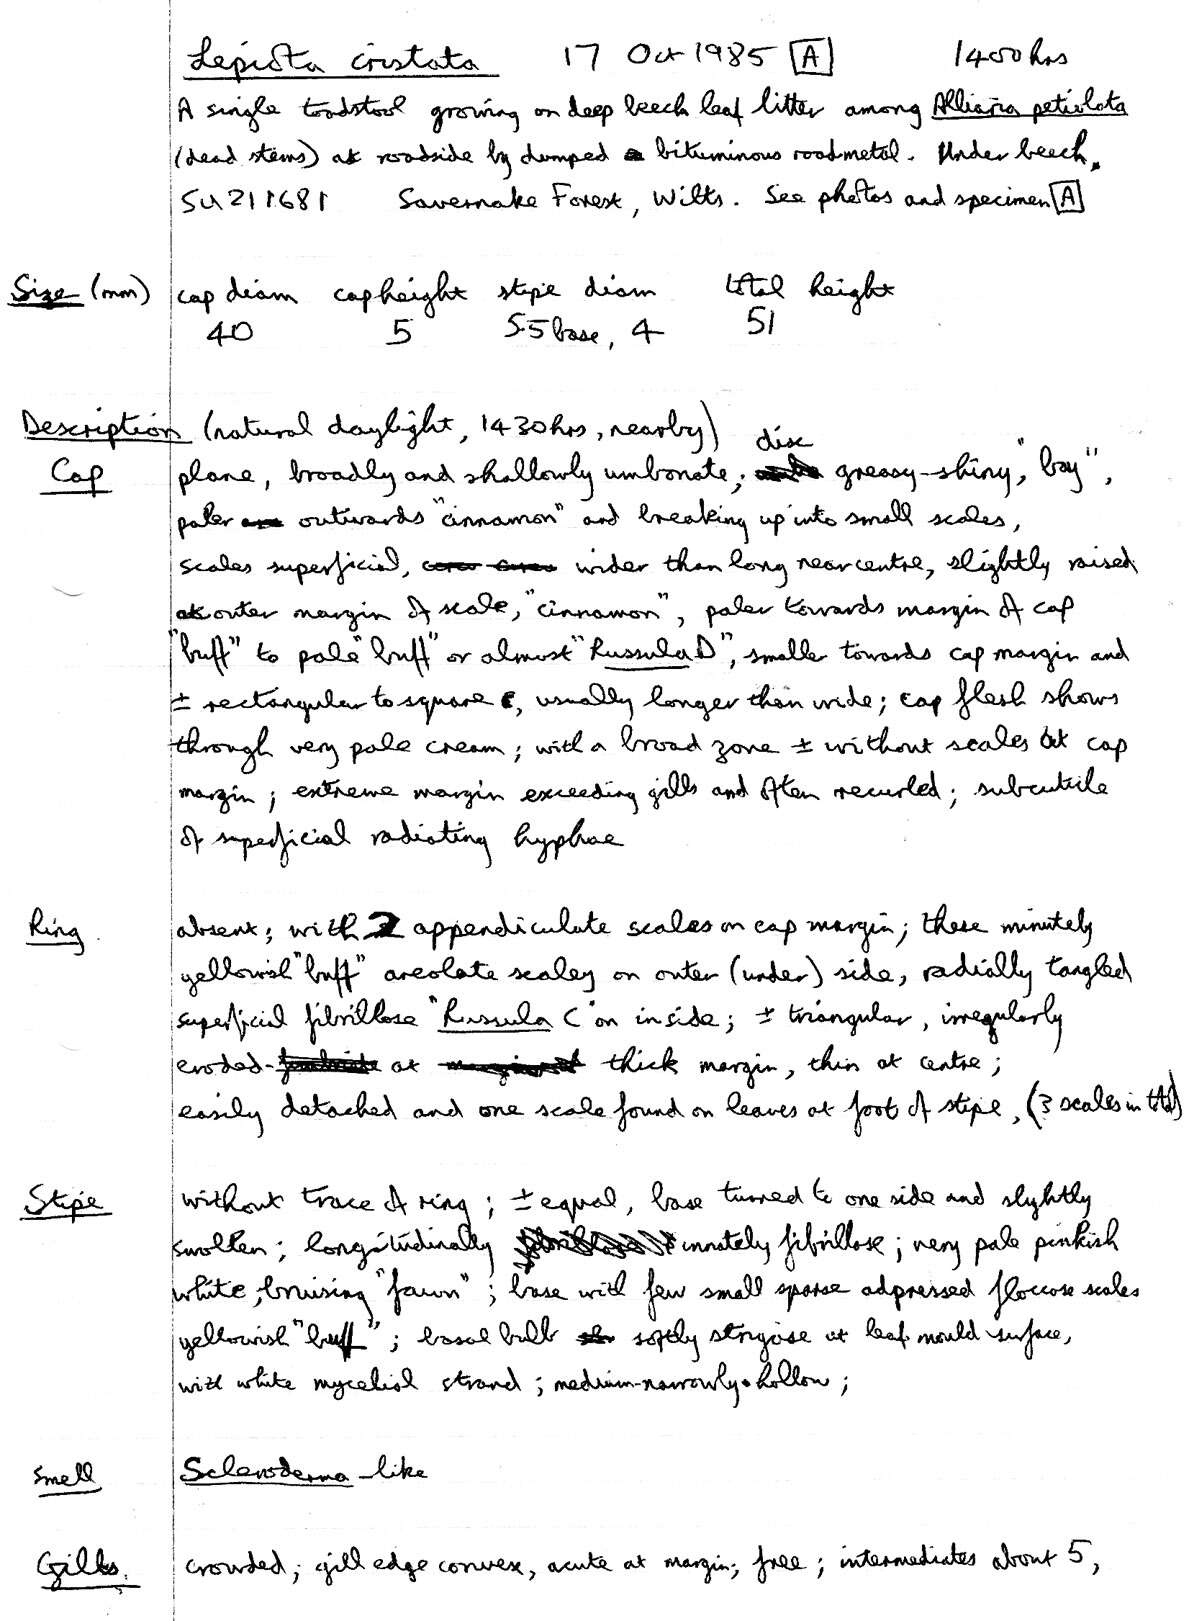 Lepiota cristata 17 Oct 1985 [A] 1400 hrs
A single toadstool growing on deep beech leaf litter among Alliaria petiolata
(dead stems) at roadside by dumped bituminous roadmetal. Under beech.
SU 211681 Savernake Forest, Wilts. See photos and specimen [A]
Size (mm) cap diam cap height stipe diam total height
40 5 5.5 base, 4 51
Description (natural daylight, 1430 hrs, nearby)
Cap plane, broadly and shallowly umbonate; disc greasy-shiny, "bay",
paler outwards "cinnamon" and breaking up into small scales,
scales superficial, wider than long near centre, slightly raised
at outer margin of scale, "cinnamon", paler towards margin of cap
"buff" to pale "buff" or almost "Russula D", smaller towards cap margin and
± rectangular to square, usually longer than wide; cap flesh shows
through very pale cream; with a broad zone ± without scales at cap
margin; extreme margin exceeding gills and often recurled; subcuticle
of superficial radiating hyphae
Ring absent; with 2 appendiculate scales on cap margin; these minutely
yellowish "buff" areolate scaley on outer (under) side, radially tangled
superficial fibrillose "Russula C" on inside; ± triangular, irregularly
eroded- at thick margin, thin at centre;
easily detached and one scale found on leaves at foot of stipe, (3 scales in total)
Stipe without trace of ring; ± equal, base turned to one side and slightly
swollen; longitudinally innately fibrillose; very pale pinkish
white, bruising "fawn"; base with few small sparse adpressed floccose scales
yellowish "buff"; basal bulb softly strigose at leaf mould surface,
with white mycelial strand; medium-narrowly hollow;
Smell Scleroderma-like
Gills crowded; gill edge convex, acute at margin; free; intermediates about 5,